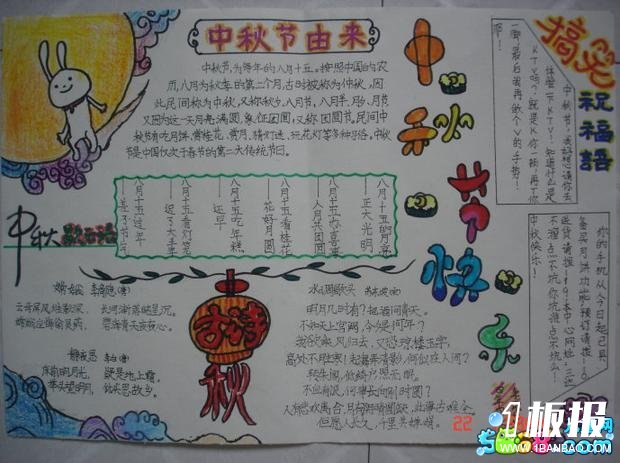 中秋节由来
中秋节,为每年的八月十五。按照中国的农
历,八月为秋季的第二个月,古时被称为仲秋,因
此民间称为中秋,又称秋夕、八月节、八月半、月夕、月节
又因为这一天月亮满圆,象征团圆,又称团圆节。民间中
秋节有吃月饼、赏桂花、赏月、猜灯迷、玩花灯等多种习俗。中秋
节是中国仅次于春节的第二大传统节日。
中秋节快乐
搞笑
祝福语
中秋节,我好想请你去
体验下KTV!知道什么是
中秋
歇后语
八月十五的月亮
——正大光明
——人月共团圆
八月十五看桂花
——花好月圆
八月十五吃年糕
——还早
八月十五看灯笼
——迟了大半季
八月十五过年
古诗
秋
嫦娥 李商隐(唐)
云母屏风烛影深,长河渐落晓星沉。
嫦娥应悔偷灵药,碧海青天夜夜心。
静夜思 李白(唐)
床前明月光,疑是地上霜。
举头望明月,低头思故乡。
水调歌头 苏东坡(宋)
明月几时有?把酒问青天。
不知天上宫阙,今夕是何年?
我欲乘风归去,又恐琼楼玉宇,
高处不胜寒!起舞弄清影,何似在人间?
转朱阁,低绮户照无眠。
不应有恨,何事长向别时圆?
人有悲欢离合,月有阴晴圆缺,此事古难全。
但愿人长久,千里共婵娟。
你的手机从今日起已具
备买月饼功能,预订请按1-9
中秋快乐!
22
1板报
WWW.1BANBAO.COM